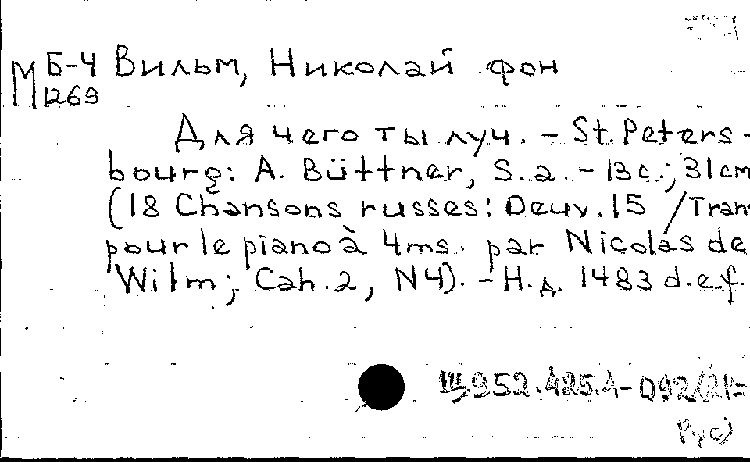 М Б-4 Вильм, Николай фон
1269
Для чего ты луч. - St. Peters-
bourg: A. Büttner, S.a. - 13 с.; 31 см
(18 Chansons russes: Oeuv. 15 / Tran
pour le piano à 4 ms. par Nicolas de
Wilm; Cah. 2, N4). - Н.д. 1483 d.e.f.
Щ952.425.4-092(21=
Рус)